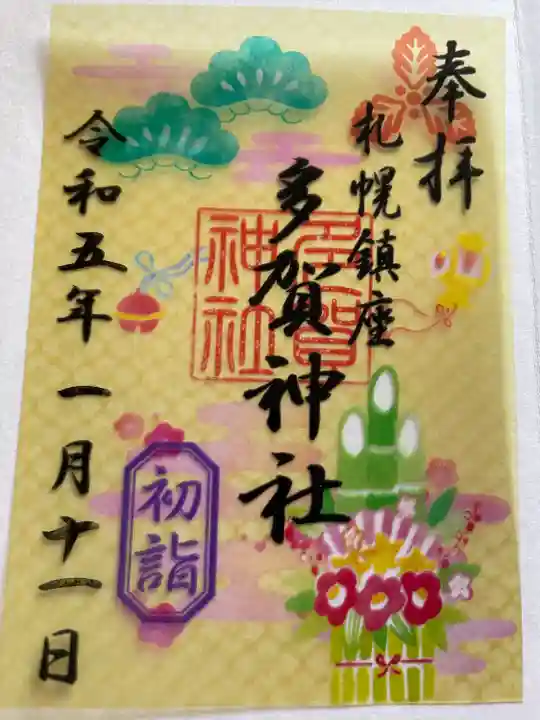 奉拝
札幌鎮座
多賀神社
多賀
神社
令和五年 一月十一日
初詣